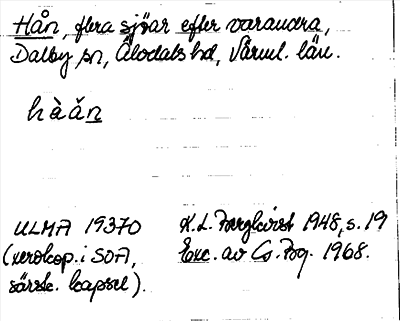 Hån, flera sjöar efter varandra,
Dalby sn, Älvdals hd, Värml. län.
hàån
ULMA 19370 K.L. Bergkvist 1948, s. 19
(xerokop. i SOA, Exc. av 1968.
särsk. kapsel).